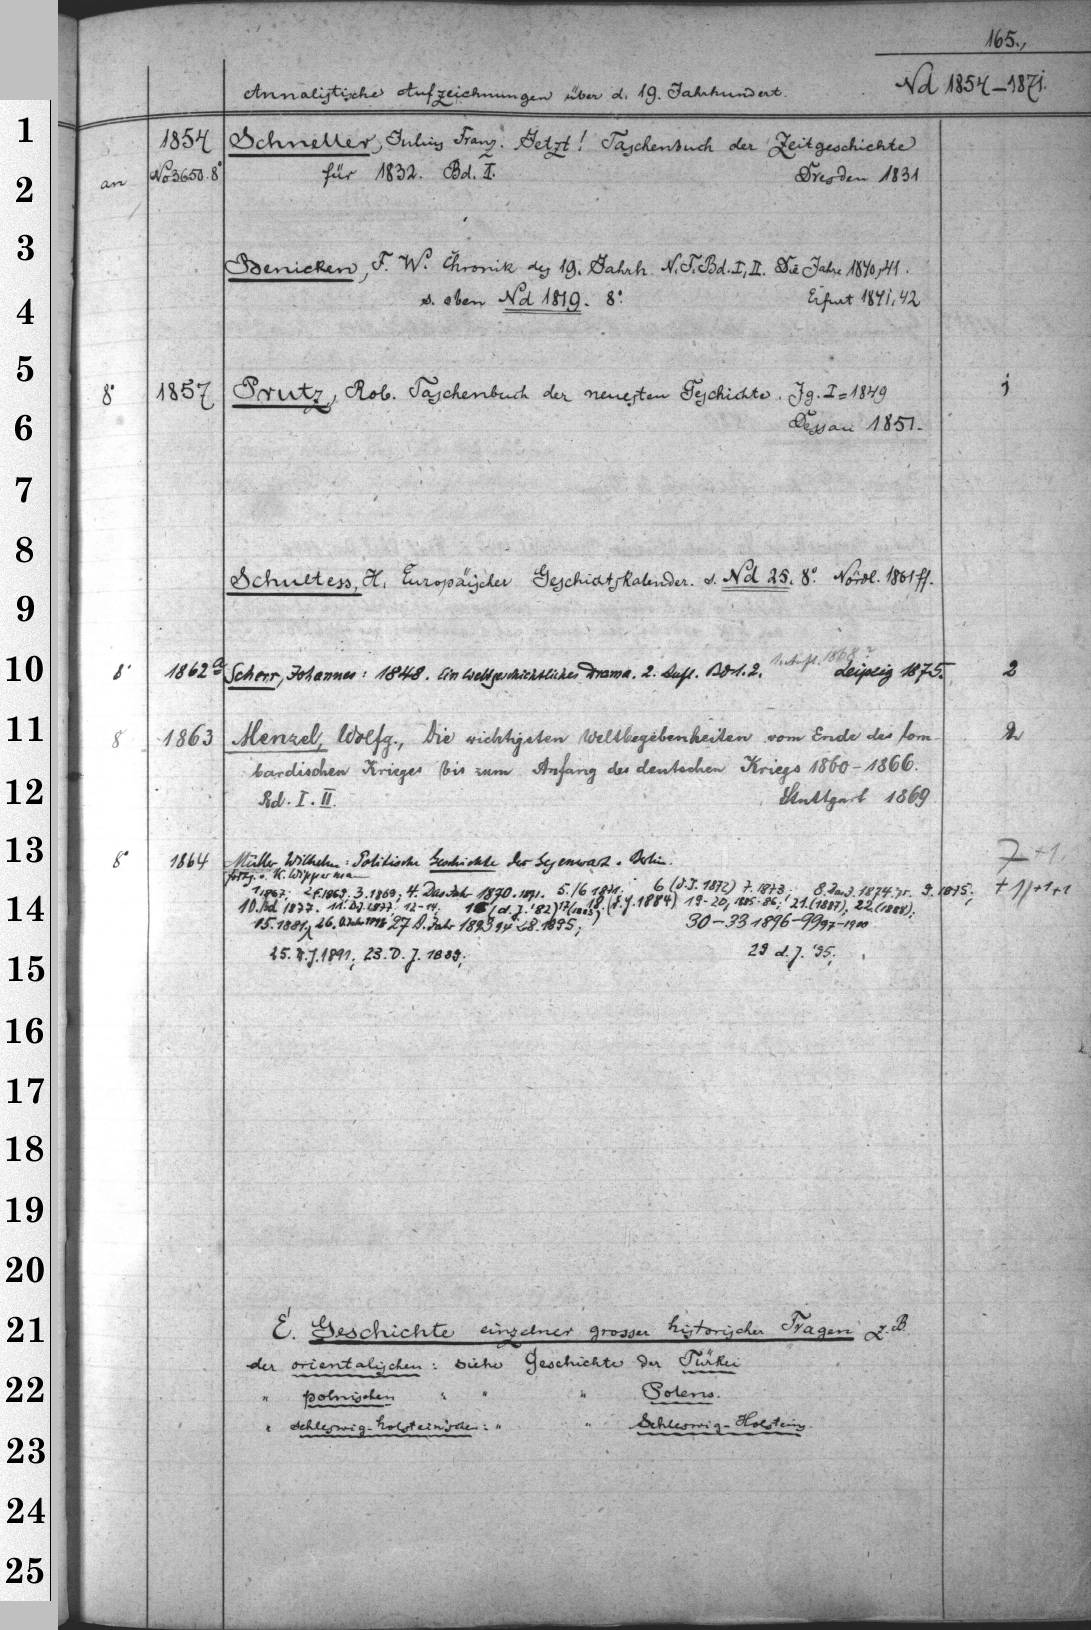 165.,
Annalistische Aufzeichnungen über d. 19. Jahrhundert. Nd 1854–1871.
1
1854 Schneller, Julius Franz. Jetzt! Taschenbuch der Zeitgeschichte
an No 3650. 8° für 1832. Bd. I. Dresden 1831
2
3
Benicken, F. W. Chronik des 19. Jahrh. N.F. Bd. I, II. Die Jahre 1840, 41.
s. oben Nd 1819. 8°. Erfurt 1841, 42
4
5
8° 1857 Prutz, Rob. Taschenbuch der neuesten Geschichte. Jg. I = 1849 1
Dessau 1851.
6
7
8
Schultess, H. Europäischer Geschichtskalender. s. Nd 25. 8°. Nördl. 1861 ff.
9
10
8° 1862a Scherr, Johannes: 1848. Ein weltgeschichtliches Drama. 2. Aufl. Bd 1. 2. Leipzig 1875. 2
11
8 1863 Menzel, Wolfg., Die wichtigsten Weltbegebenheiten vom Ende des lom- 2
bardischen Krieges bis zum Anfang des deutschen Kriegs 1860–1866.
12
Bd. I. II. Stuttgart 1869
13
8° 1864 Müller, Wilhelm: Politische Geschichte der Gegenwart. Berlin. 7 +1.
fortg. v. K. Wippermann
1.1867; 2.1868; 3.1869; 4. Das Jahr 1870. 1871. 5./6 1871; 6 (D.J. 1872) 7. 1873; 8. Das J. 1874. 75. 9. 1875; + 11+1+1
14
10. Bd 1877. 11. D.J. 1877. 12–14; 16 (d. J. '82) 18. (d. J. 1884) 19–20, 1885–86; 21. (1887); 22. (1888);
15. 1881, 27 D. Jahr 1893 28. 1895; 30–33 1896–99
25. D. J. 1891; 23. D. J. 1889; 29 d. J. '95;
15
16
17
18
19
20
21
E. Geschichte einzelner grosser historischer Fragen z. B.
der orientalischen: siehe Geschichte der Türkei
22
" polnischen " " " Polens.
" schleswig-holstein'schen: " " Schleswig-Holsteins.
23
24
25